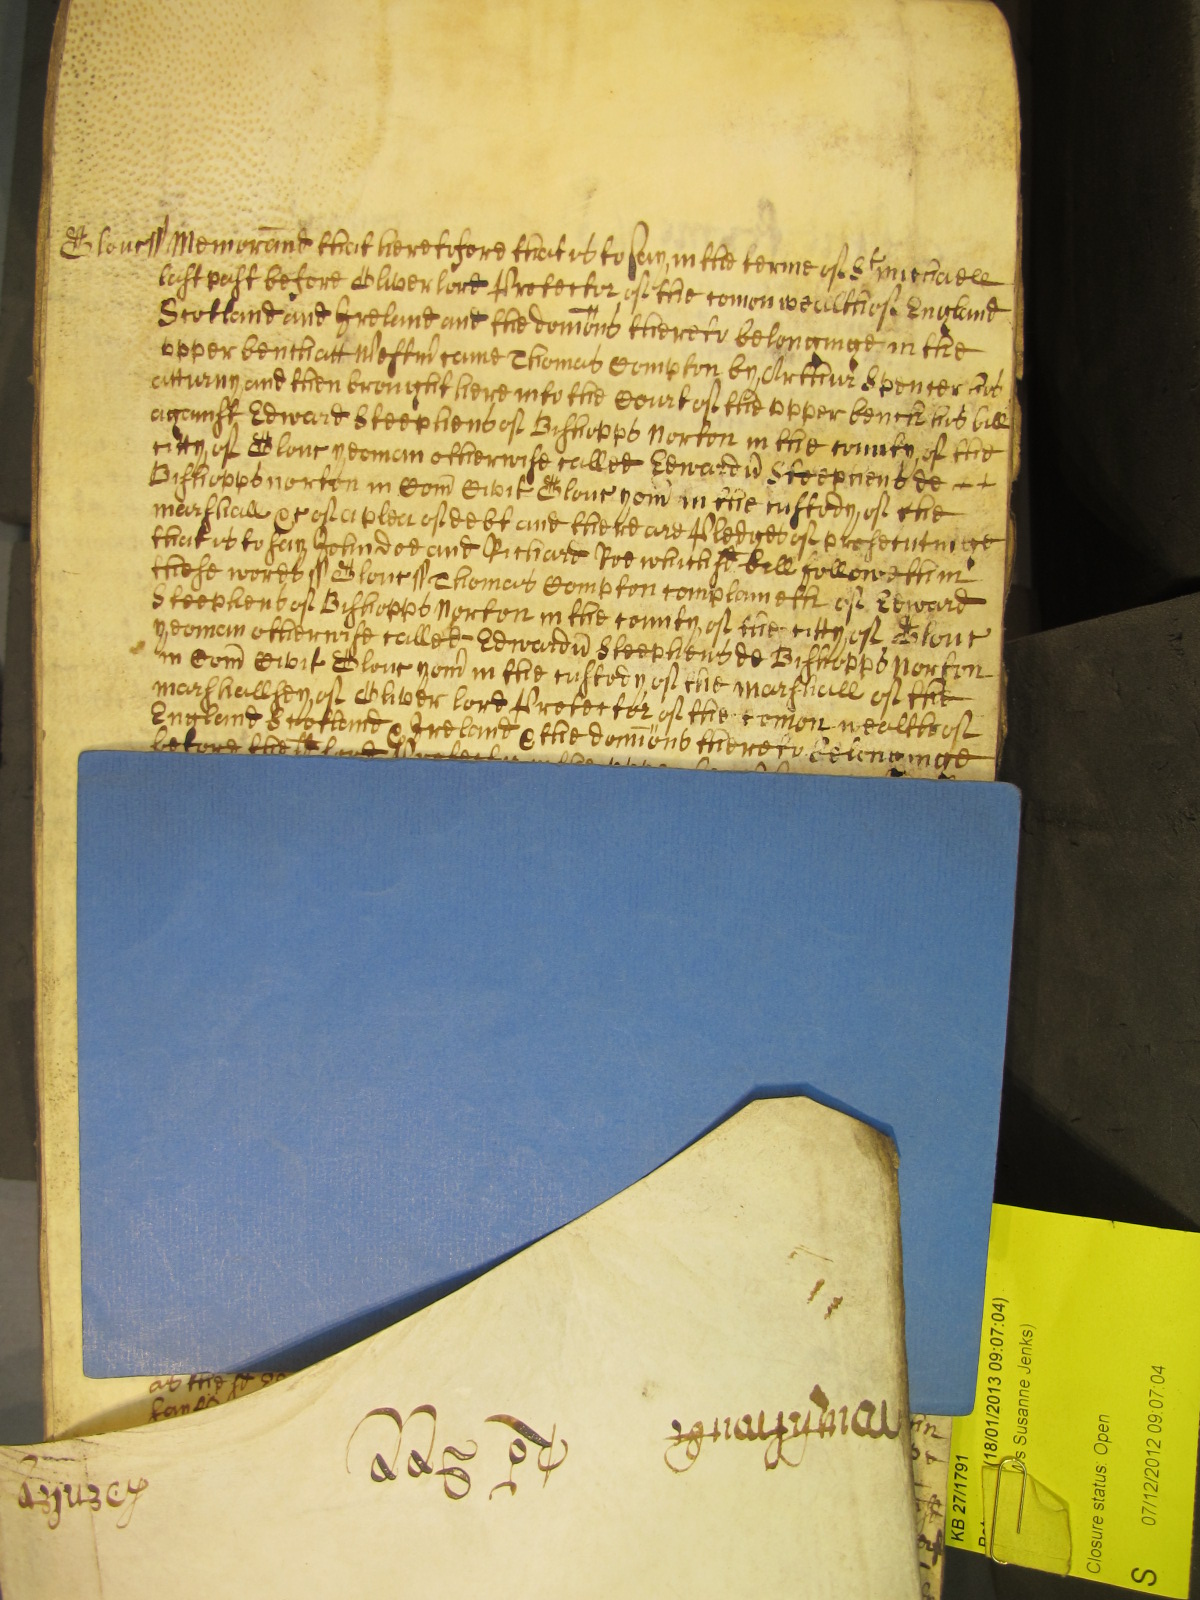 Glouc ss Memorand that heretofore that is to say in the terme of St Michaell
last past before Oliver lord Protector of the comon wealth of England
Scotland and Ireland and the domions thereto belonginge in the
upper bench att Westm came Thomas Compton by Arthur Spencer his
atturny and then brought here into the Court of the upper bench his bill
against Edward Steephens of Bishopps Norton in the county of the
citty of Glouc yeoman otherwise called Edwardu Steephens de
Bishopps norton in Com Civit Glouc yom in the custody of the
marshall &c of a plea of debt and there are Pledges of prosecutinge
that is to say John Doe and Richard Roe which sd bill followeth in
these words ss Glouc ss Thomas Compton complaineth of Edward
Steephens of Bishopps Norton in the county of the citty of Glouc
yeoman otherwise called Edwardu Steephens de Bishopps Norton
in Com Civit Glouc yom in the custody of the marshall of the
marshallsey of Oliver lord Protector of the comon wealth of
England Scotland & Ireland & the domions thereto belonginge
before the sd lord Protector in the upper
at the sd
KB 27/1791
(18/01/2013 09:07:04)
s Susanne Jenks)
Closure status: Open
S 07/12/2012 09:07:04